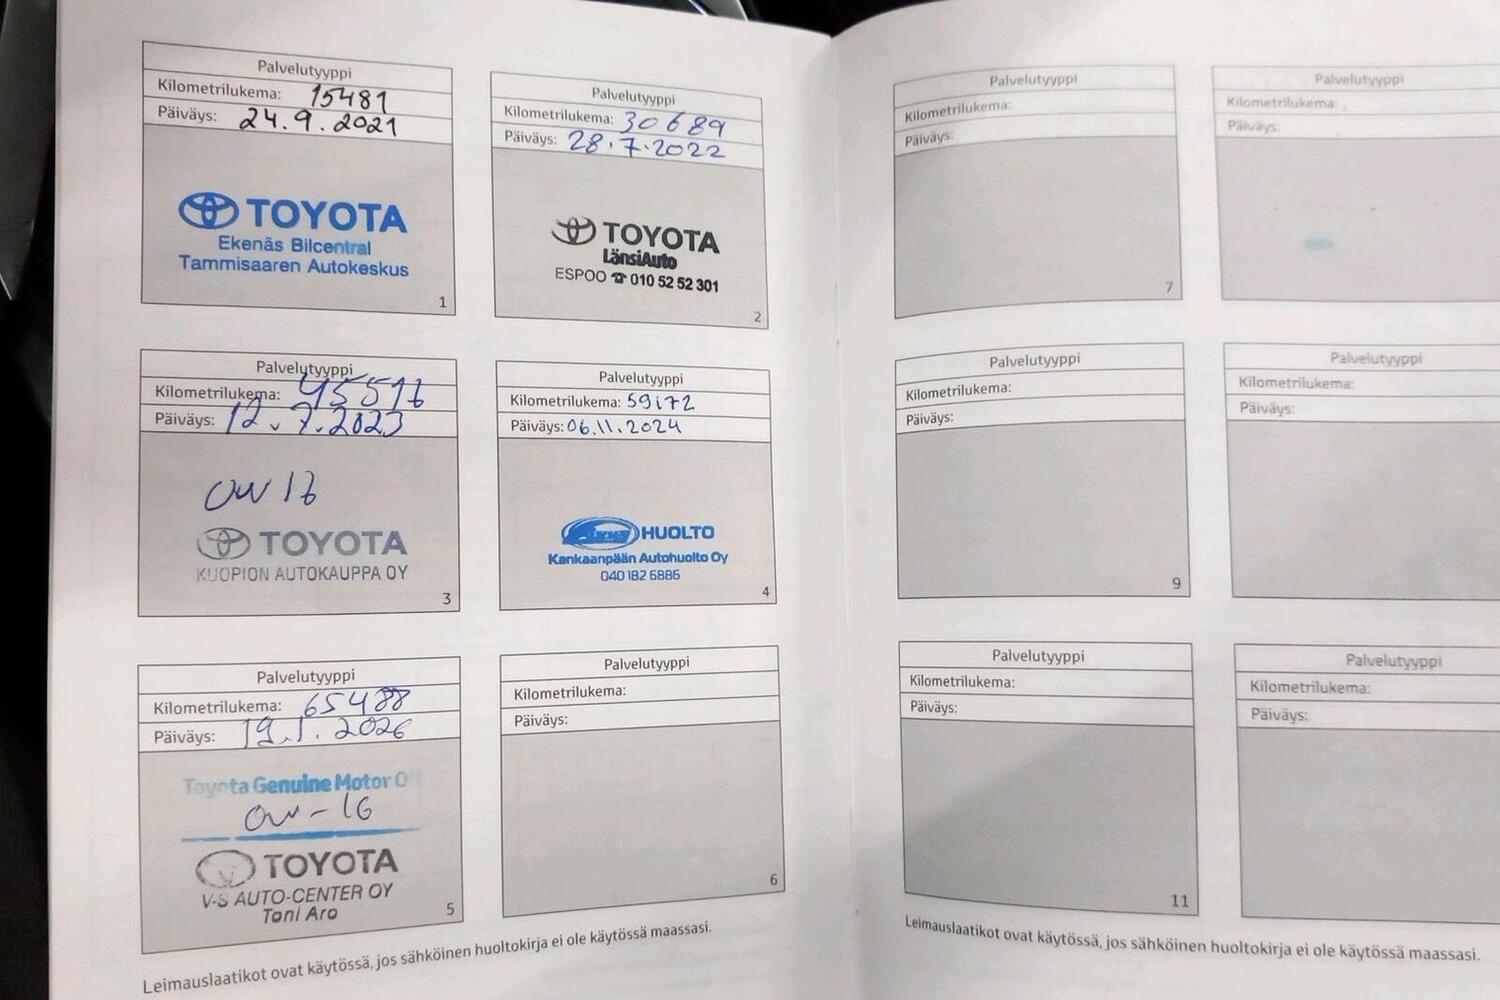 Palvelutyyppi
Kilometrilukema: 15481
Päiväys: 24.9.2021
TOYOTA
Ekenäs Bilcentral
Tammisaaren Autokeskus
1
Palvelutyyppi
Kilometrilukema: 30689
Päiväys: 28.7.2022
TOYOTA
LänsiAuto
ESPOO ☎ 010 52 52 301
2
Palvelutyyppi
Kilometrilukema: 45516
Päiväys: 12.7.2023
OW 16
TOYOTA
KUOPION AUTOKAUPPA OY
3
Palvelutyyppi
Kilometrilukema: 59172
Päiväys: 06.11.2024
HUOLTO
Kankaanpään Autohuolto Oy
040 182 6886
4
Palvelutyyppi
Kilometrilukema: 65488
Päiväys: 19.1.2026
Toyota Genuine Motor O
OW-16
TOYOTA
V-S AUTO-CENTER OY
Toni Aro
5
Palvelutyyppi
Kilometrilukema:
Päiväys:
6
Leimauslaatikot ovat käytössä, jos sähköinen huoltokirja ei ole käytössä maassasi.
Palvelutyyppi
Kilometrilukema:
Päiväys:
7
Palvelutyyppi
Kilometrilukema:
Päiväys:
Palvelutyyppi
Kilometrilukema:
Päiväys:
9
Palvelutyyppi
Kilometrilukema:
Päiväys:
Palvelutyyppi
Kilometrilukema:
Päiväys:
11
Palvelutyyppi
Kilometrilukema:
Päiväys:
Leimauslaatikot ovat käytössä, jos sähköinen huoltokirja ei ole käytössä maassasi.